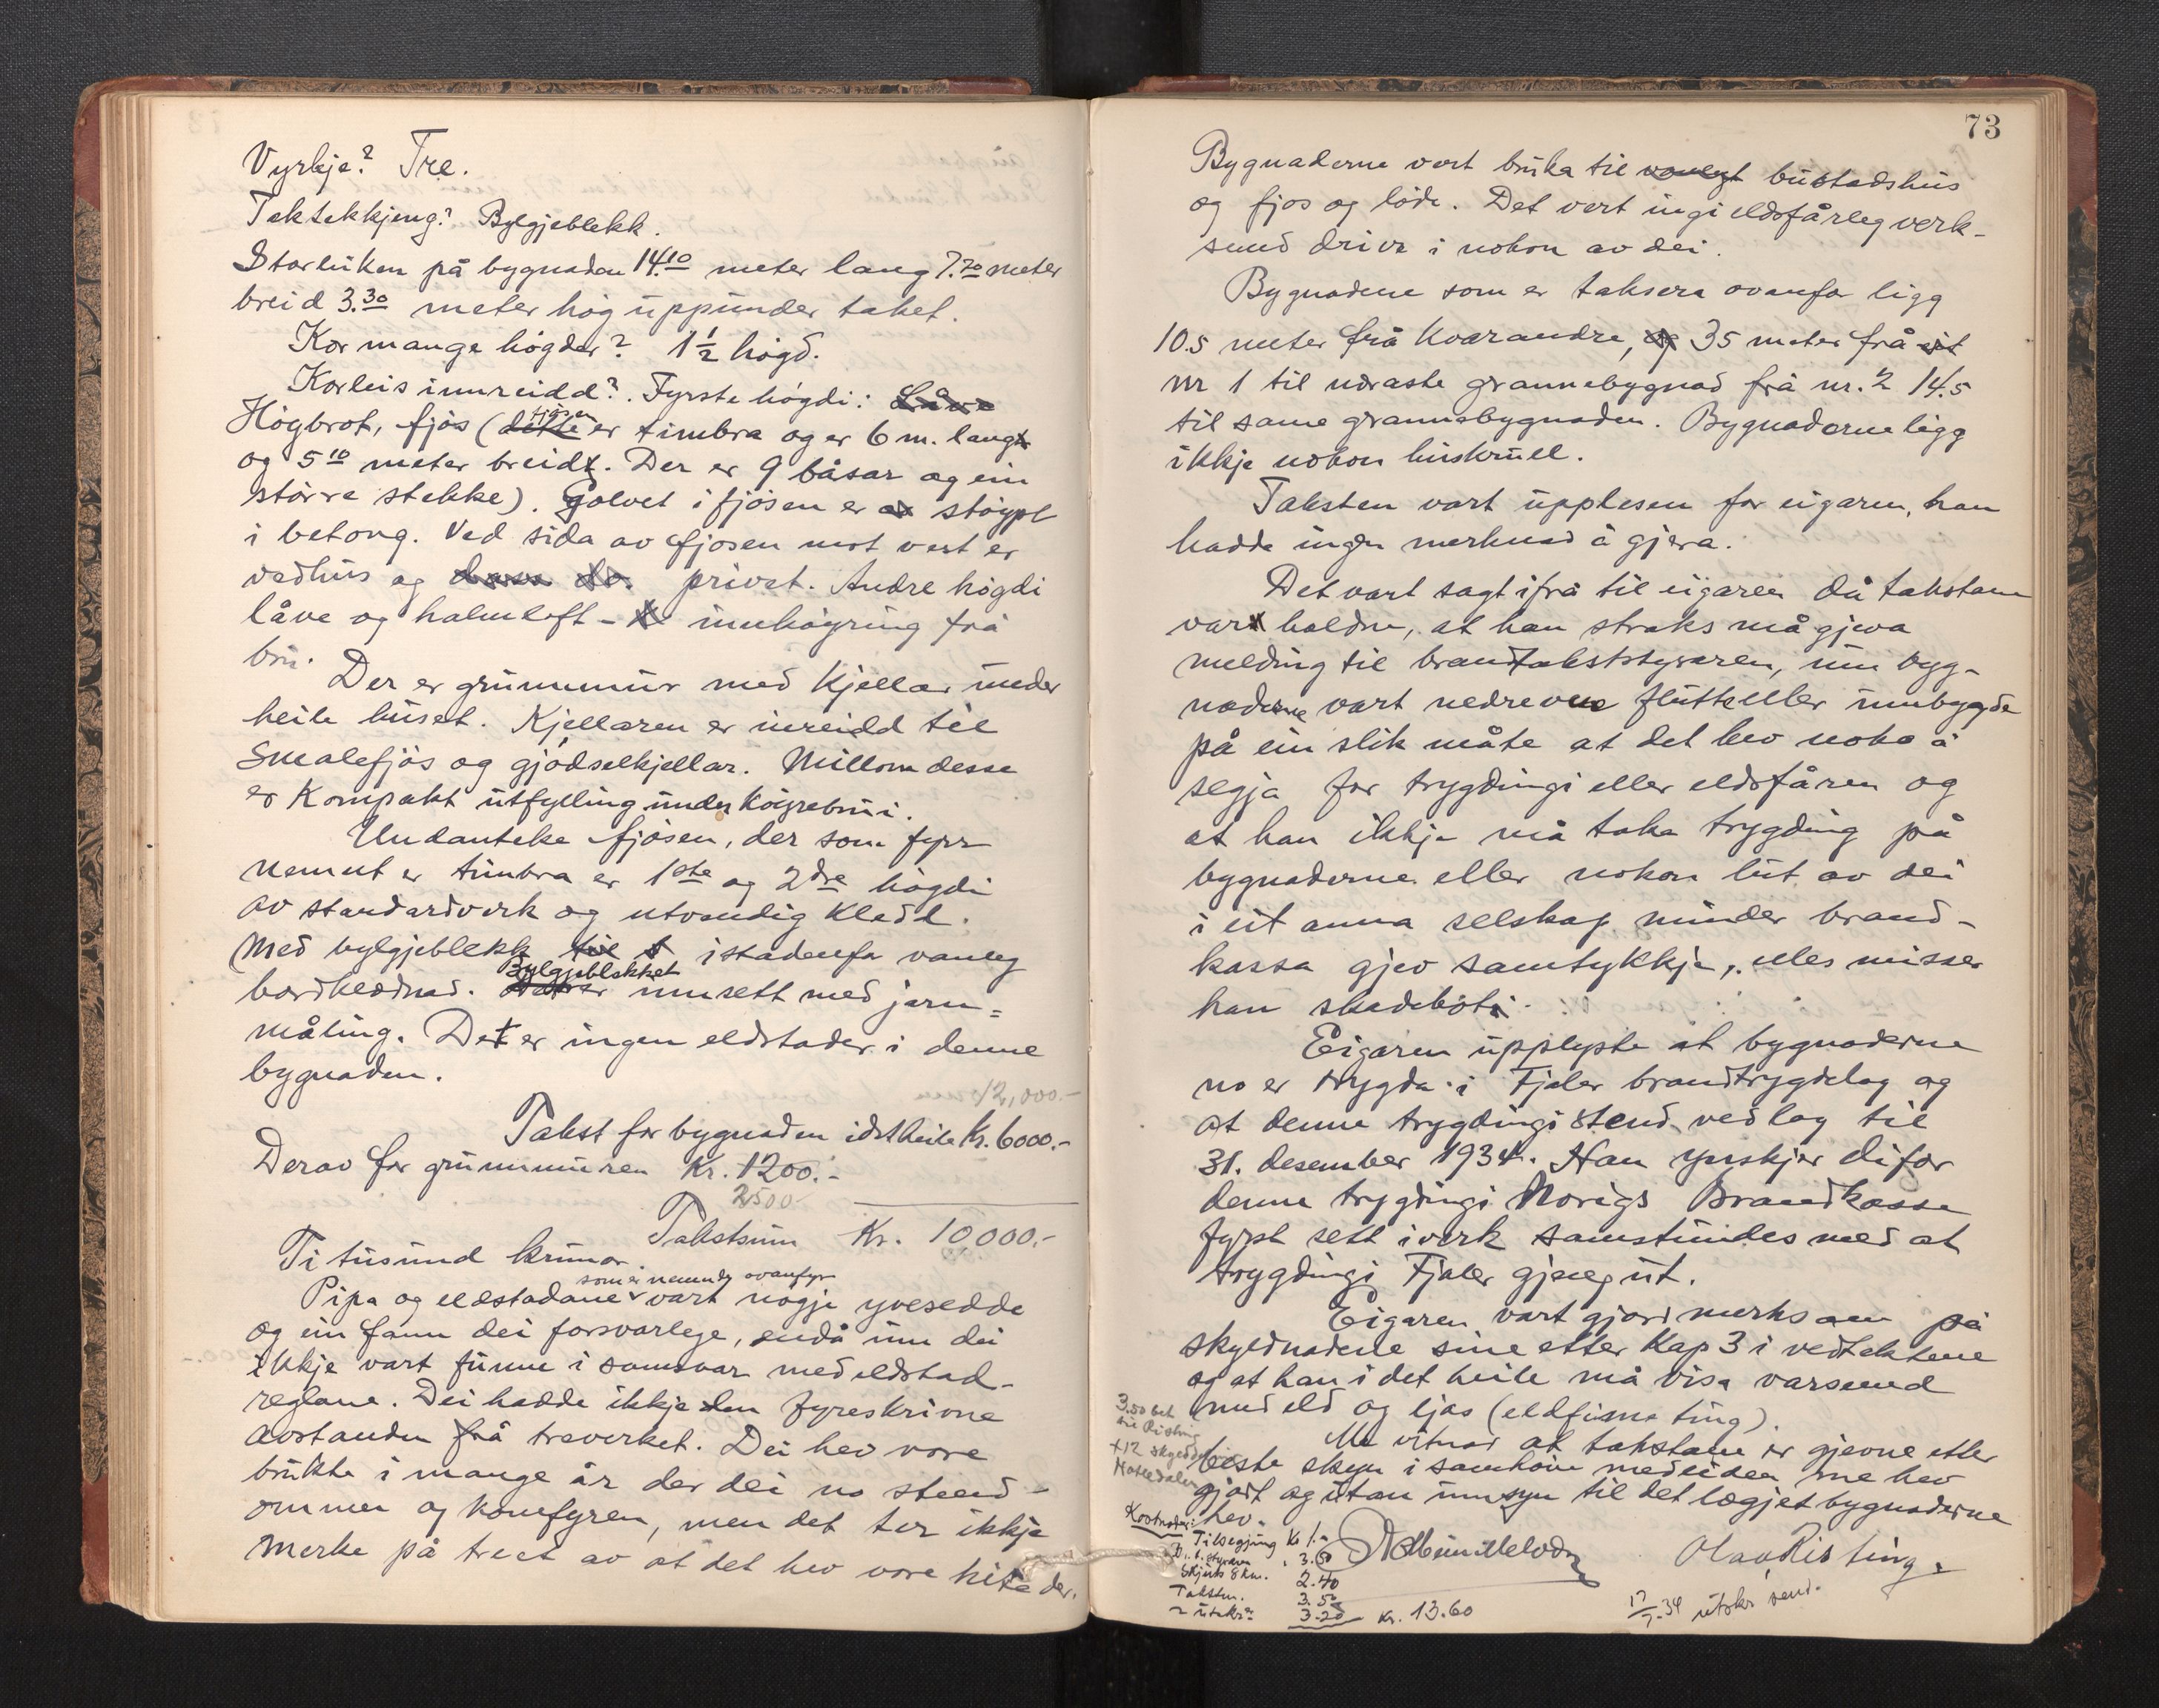 Vyrkje? Tre.
Taktekkjeng? Bylgjeblekk.
Storleiken på bygnaden 14.10 meter lang 7.70 meter
breid 3.30 meter høg uppunder taket.
Kor mange høgder? 1 1/2 høgd.
Korleis innreidd? Fyrste høgdi: Låve
Høgbrot, fjøs (dette fjøsen er timbra og er 6 m. lang
og 5 10 meter breid. Der er 9 båsar og ein
større stekke). Golvet i fjøsen er støypt
i betong. Ved sida av fjøsen mot vest er
vedhus og do. privet. Andre høgdi
låve og halmloft - innkøyring frå
bru.
Der er grunnmur med kjellar under
heile huset. Kjellaren er inreidd til
Smalefjøs og gjødselkjellar. Millom desse
er kompakt utfylling under køyrebrui.
Undanteke fjøsen, der som fyrr
nemnt er timbra er 1ste og 2dre høgdi
av standardverk og utvendig kledd.
Med bylgjeblekk til istadenfor vanleg
bordklednad. Bylgjeblekket er innsett med jarn=
måling. Det er ingen eldstader i denne
bygnaden.
12,000.-
Takst for bygnaden i det heile Kr. 6000.-
Derav for grunnmuren Kr. 1200.-
2500
Takstsum Kr. 10,000.-
Ti tusund krunor.
som er nemnde ovanfyr
Pipa og eldstadane vart nøgje yvesedde
og ein fann dei forsvarlege, endå um dei
ikkje vart funne i samsvar med eldstad-
reglane. Dei hadde ikkje den fyreskrivne
avstanden frå treverket. Dei hev vore
brukte i mange år der dei no stend -
omnen og komfyren, men det ter ikkje
merke på treet av at det hev vore hita der.
73
Bygnaderne vert bruka til vanlegt bustadshus
og fjøs og løde. Det vert ingi eldsfårleg verk-
semd drive i nokon av dei.
Bygnadene som er taksera ovanfor ligg
10.5 meter frå kvarandre, og 35 meter frå eit
nr 1 til næraste grannebygnad frå nr. 2 14.5
til same grannebygnaden. Bygnaderne ligg
ikkje nokon huskrull.
Taksten vart upplesen for eigaren, han
hadde ingen merknad å gjera.
Det vart sagt ifrå til eigaren då takstane
var haldne, at han straks må gjeva
melding til brandtakststyraren, um byg-
naderne vart nedrevne flutte eller umbygde
på ein slik måte at det hev noko å
segja for trygdingi eller eldsfåren og
at han ikkje må taka trygding på
bygnaderne eller nokon lut av dei
i eit anna selskap minder brand-
kassa gjev samtykkje, elles misser
han skadebøti.
Eigaren upplyste at bygnaderne
no er trygda i Fjaler brandtrygdelag og
at denne trygdingi stend ved lag til
31. desember 1934. Han ynskjer difor
denne trygdingi Norigs Brandkasse
fyrst sett i verk samstundes med at
trygdingi Fjaler gjeng ut.
Eigaren vart gjord merksam på
skyldnadene sine etter Kap 3 i vedtektene
og at han i det heile må visa varsemd
med eld og ljos (eldfisme ting).
Me vitnar at takstane er gjevne etter
beste skyn i samhøve med eiden me hev
gjort og utan umsyn til det lægjet bygnaderne
hev.
3.50 bet
til Risting
+12 skyss
Kostnader:
Tilsegjing Kr 1.-
B.t.styraren " 3.50
Skjuts 8 km. 2.40
Takstm. 3.50
" utskr. 3.20 Kr. 13.60
Olav Risting.
17/7-34 utskr. send.